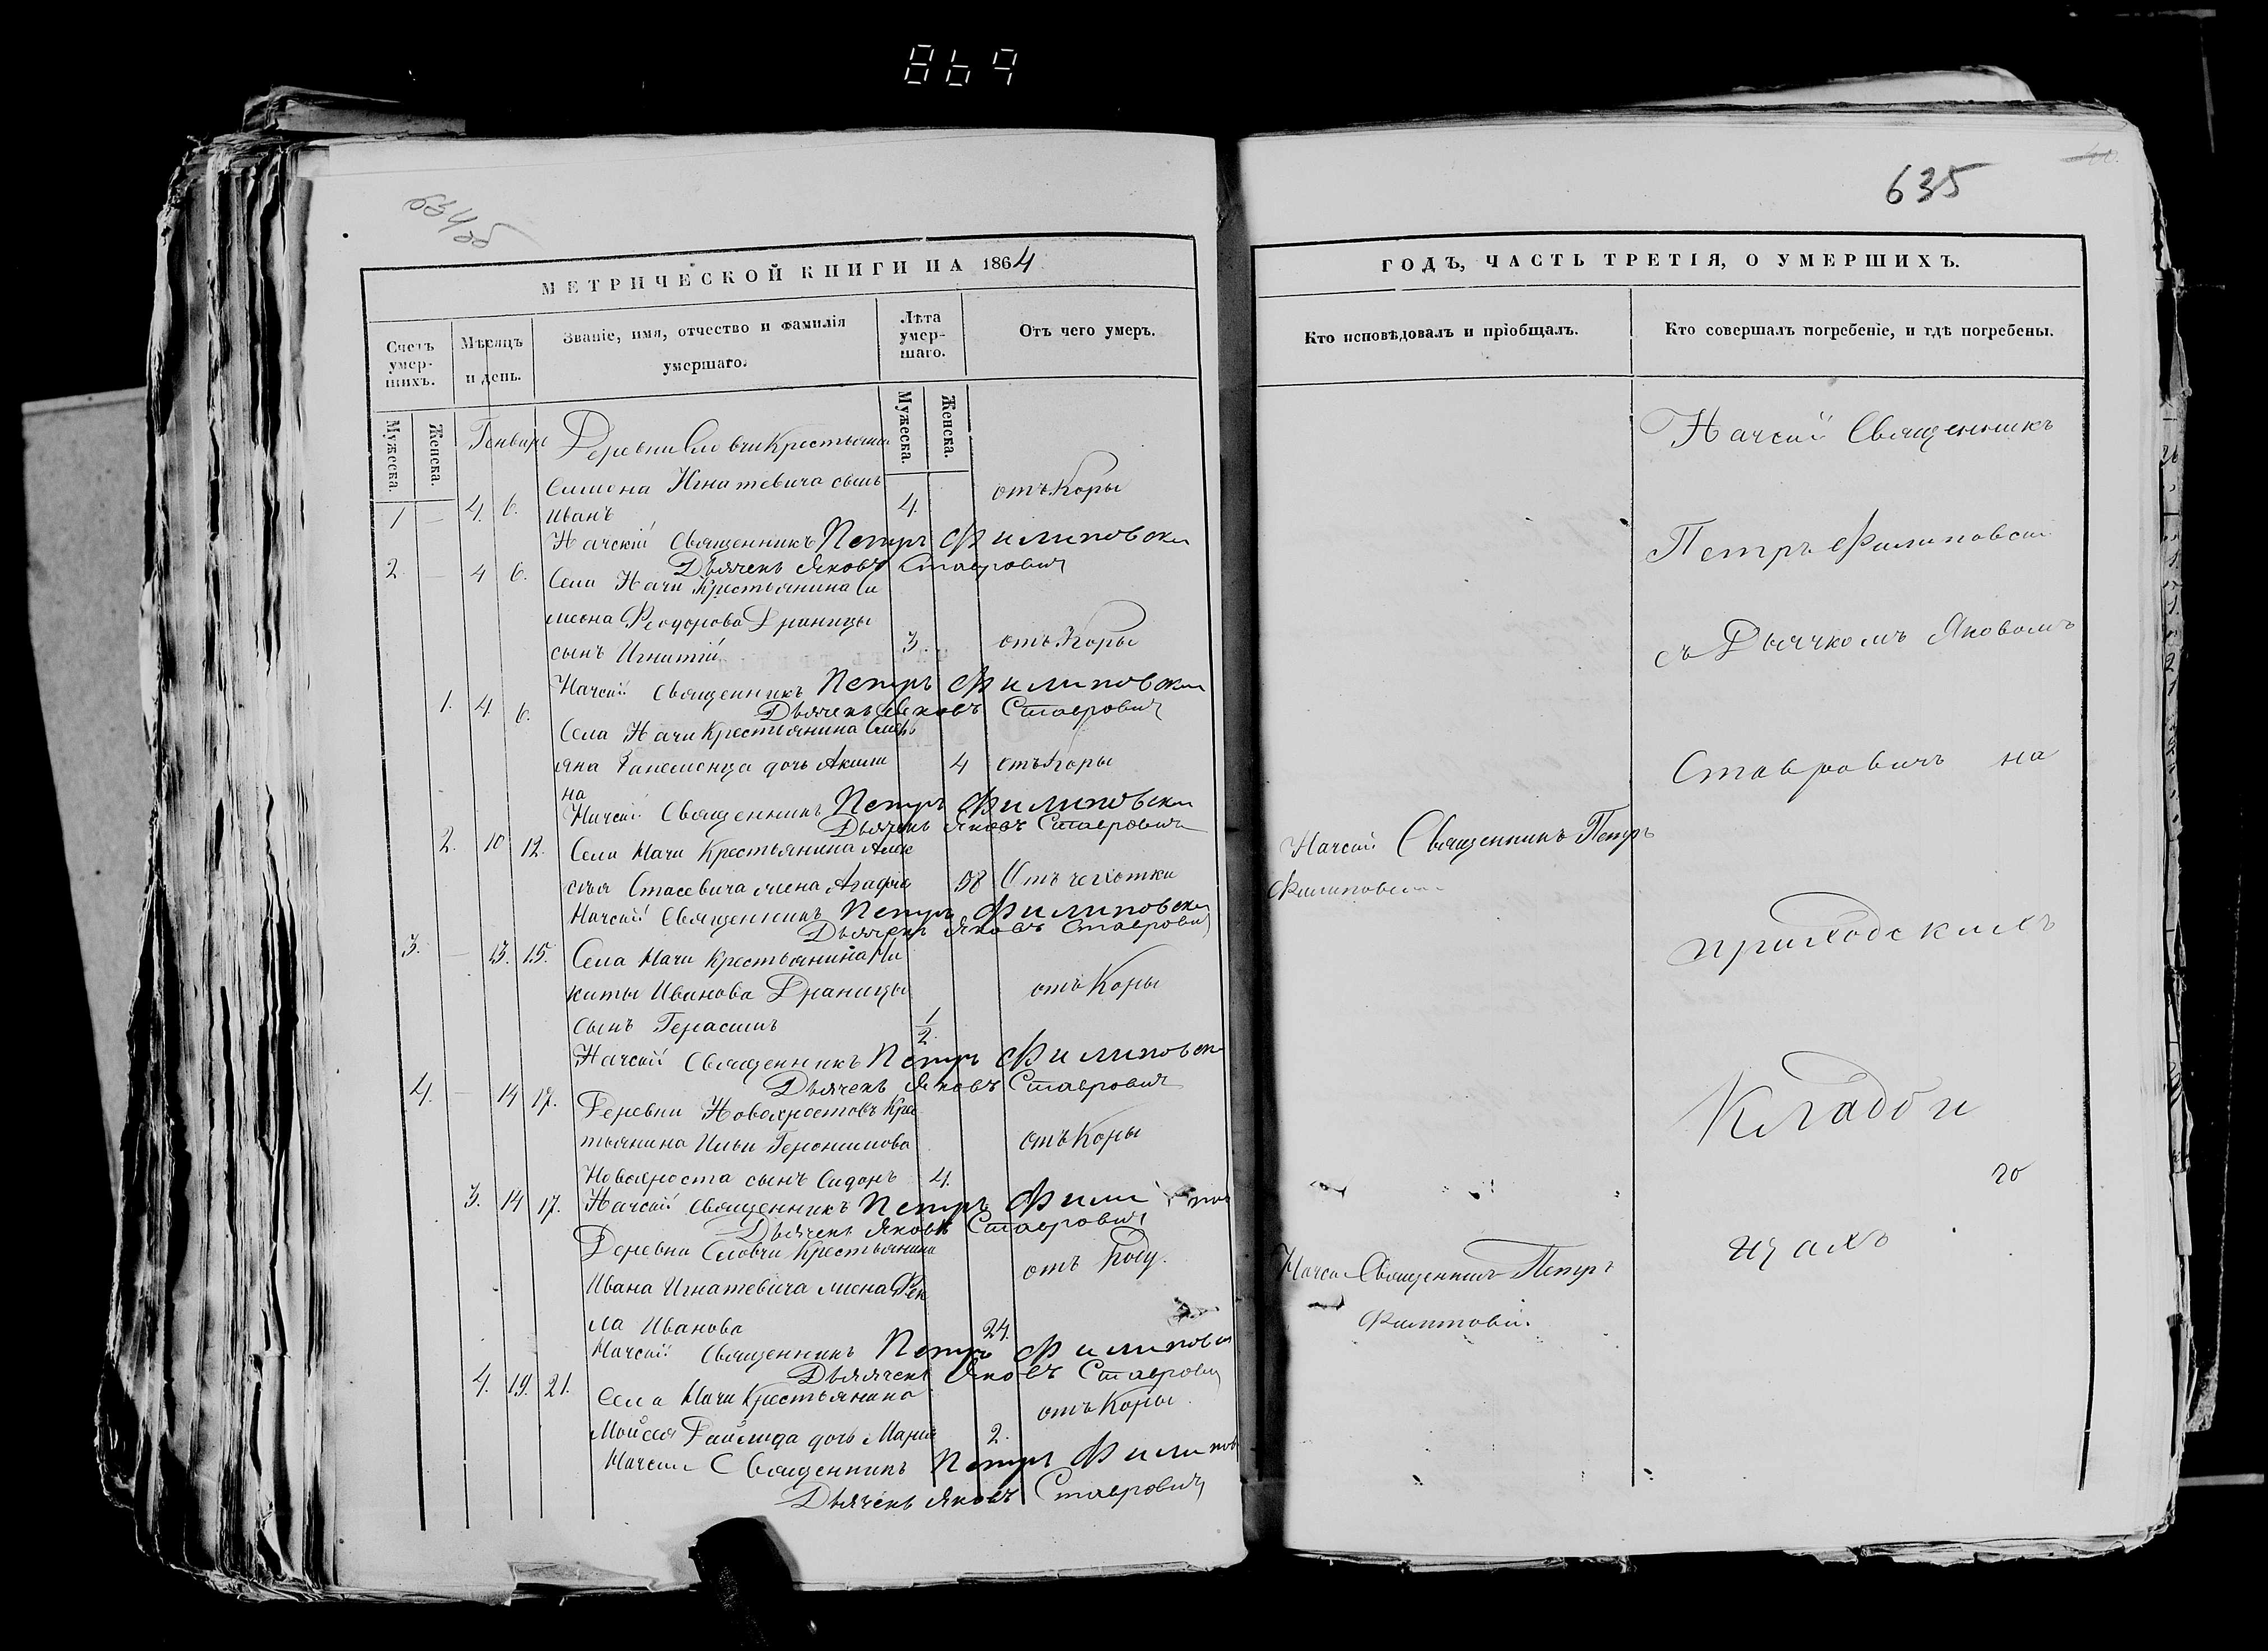 869
634 об
МЕТРИЧЕСКОЙ КНИГИ НА 1864
Счетъ умер-шихъ.
Мѣсяцъ и день.
Званіе, имя, отчество и фамилія умершаго.
Лѣта умер-шаго.
Отъ чего умеръ.
Мужеска.
Женска.
Мужеска.
Женска.
Генваря
Деревни Словчи Крестьянина
1 — 4. 6. Симона Игнатевича сынъ 4. отъ Коры
Иванъ
Начскій Священникъ Петръ Филиповски
Дьячекъ Яковъ Ставровичъ
2 — 4 6. Села Начи Крестьянина Си
меона Феодорова Драницы
сынъ Игнатій 3. отъ Коры
Начскій Священникъ Петръ Филиповски
Дьячекъ Яковъ Ставровичъ
1. 4. 6. Села Начи Крестьянина
яна дочь Акили 4 отъ Коры
на
Начскій Священникъ Петръ Филиповски
Дьячекъ Яковъ Ставровичъ
2. 10 12. Села Начи Крестьянина Алек
сѣя Стасевича жена Агафія 58 Отъ чехотки
Начскій Священникъ Петръ Филиповски
Дьячекъ Яковъ Ставровичъ
3. — 13. 15. Села Начи Крестьянина Ни
киты Иванова Драницы отъ Коры
сынъ Герасимъ 1/2
Начскій Священникъ Петръ Филиповски
Дьячекъ Яковъ Ставровичъ
4. — 14 17. Деревни Кре
тьянина Ильи Геронимова отъ Коры
сынъ Сидоръ 4.
Начскій Священникъ Петръ Филипов
Дьячекъ Яковъ Ставровичъ
3. 14 17. Деревни Словчи Крестьянина
Ивана Игнатевича жена Фек отъ Роду.
ла Иванова 24.
Начскій Священникъ Петръ Филиповски
Дьячекъ Яковъ Ставровичъ
4. 19. 21. Села Начи Крестьянина
Мойсея дочь Марія 2. отъ Коры
Начскій Священникъ Петръ Филипов
Дьячекъ Яковъ Ставровичъ
635
ГОДЪ, ЧАСТЬ ТРЕТІЯ, О УМЕРШИХЪ.
Кто исповѣдовалъ и пріобщалъ.
Кто совершалъ погребеніе, и гдѣ погребены.
Начскій Священникъ
Петръ Филиповскій
съ Дьячкомъ Яковомъ
Ставровичъ на
Начскій Священникъ Петръ
Филиповскій
приходскихъ
Кладби
Начскій Священникъ Петръ
Филиповскій
щахъ